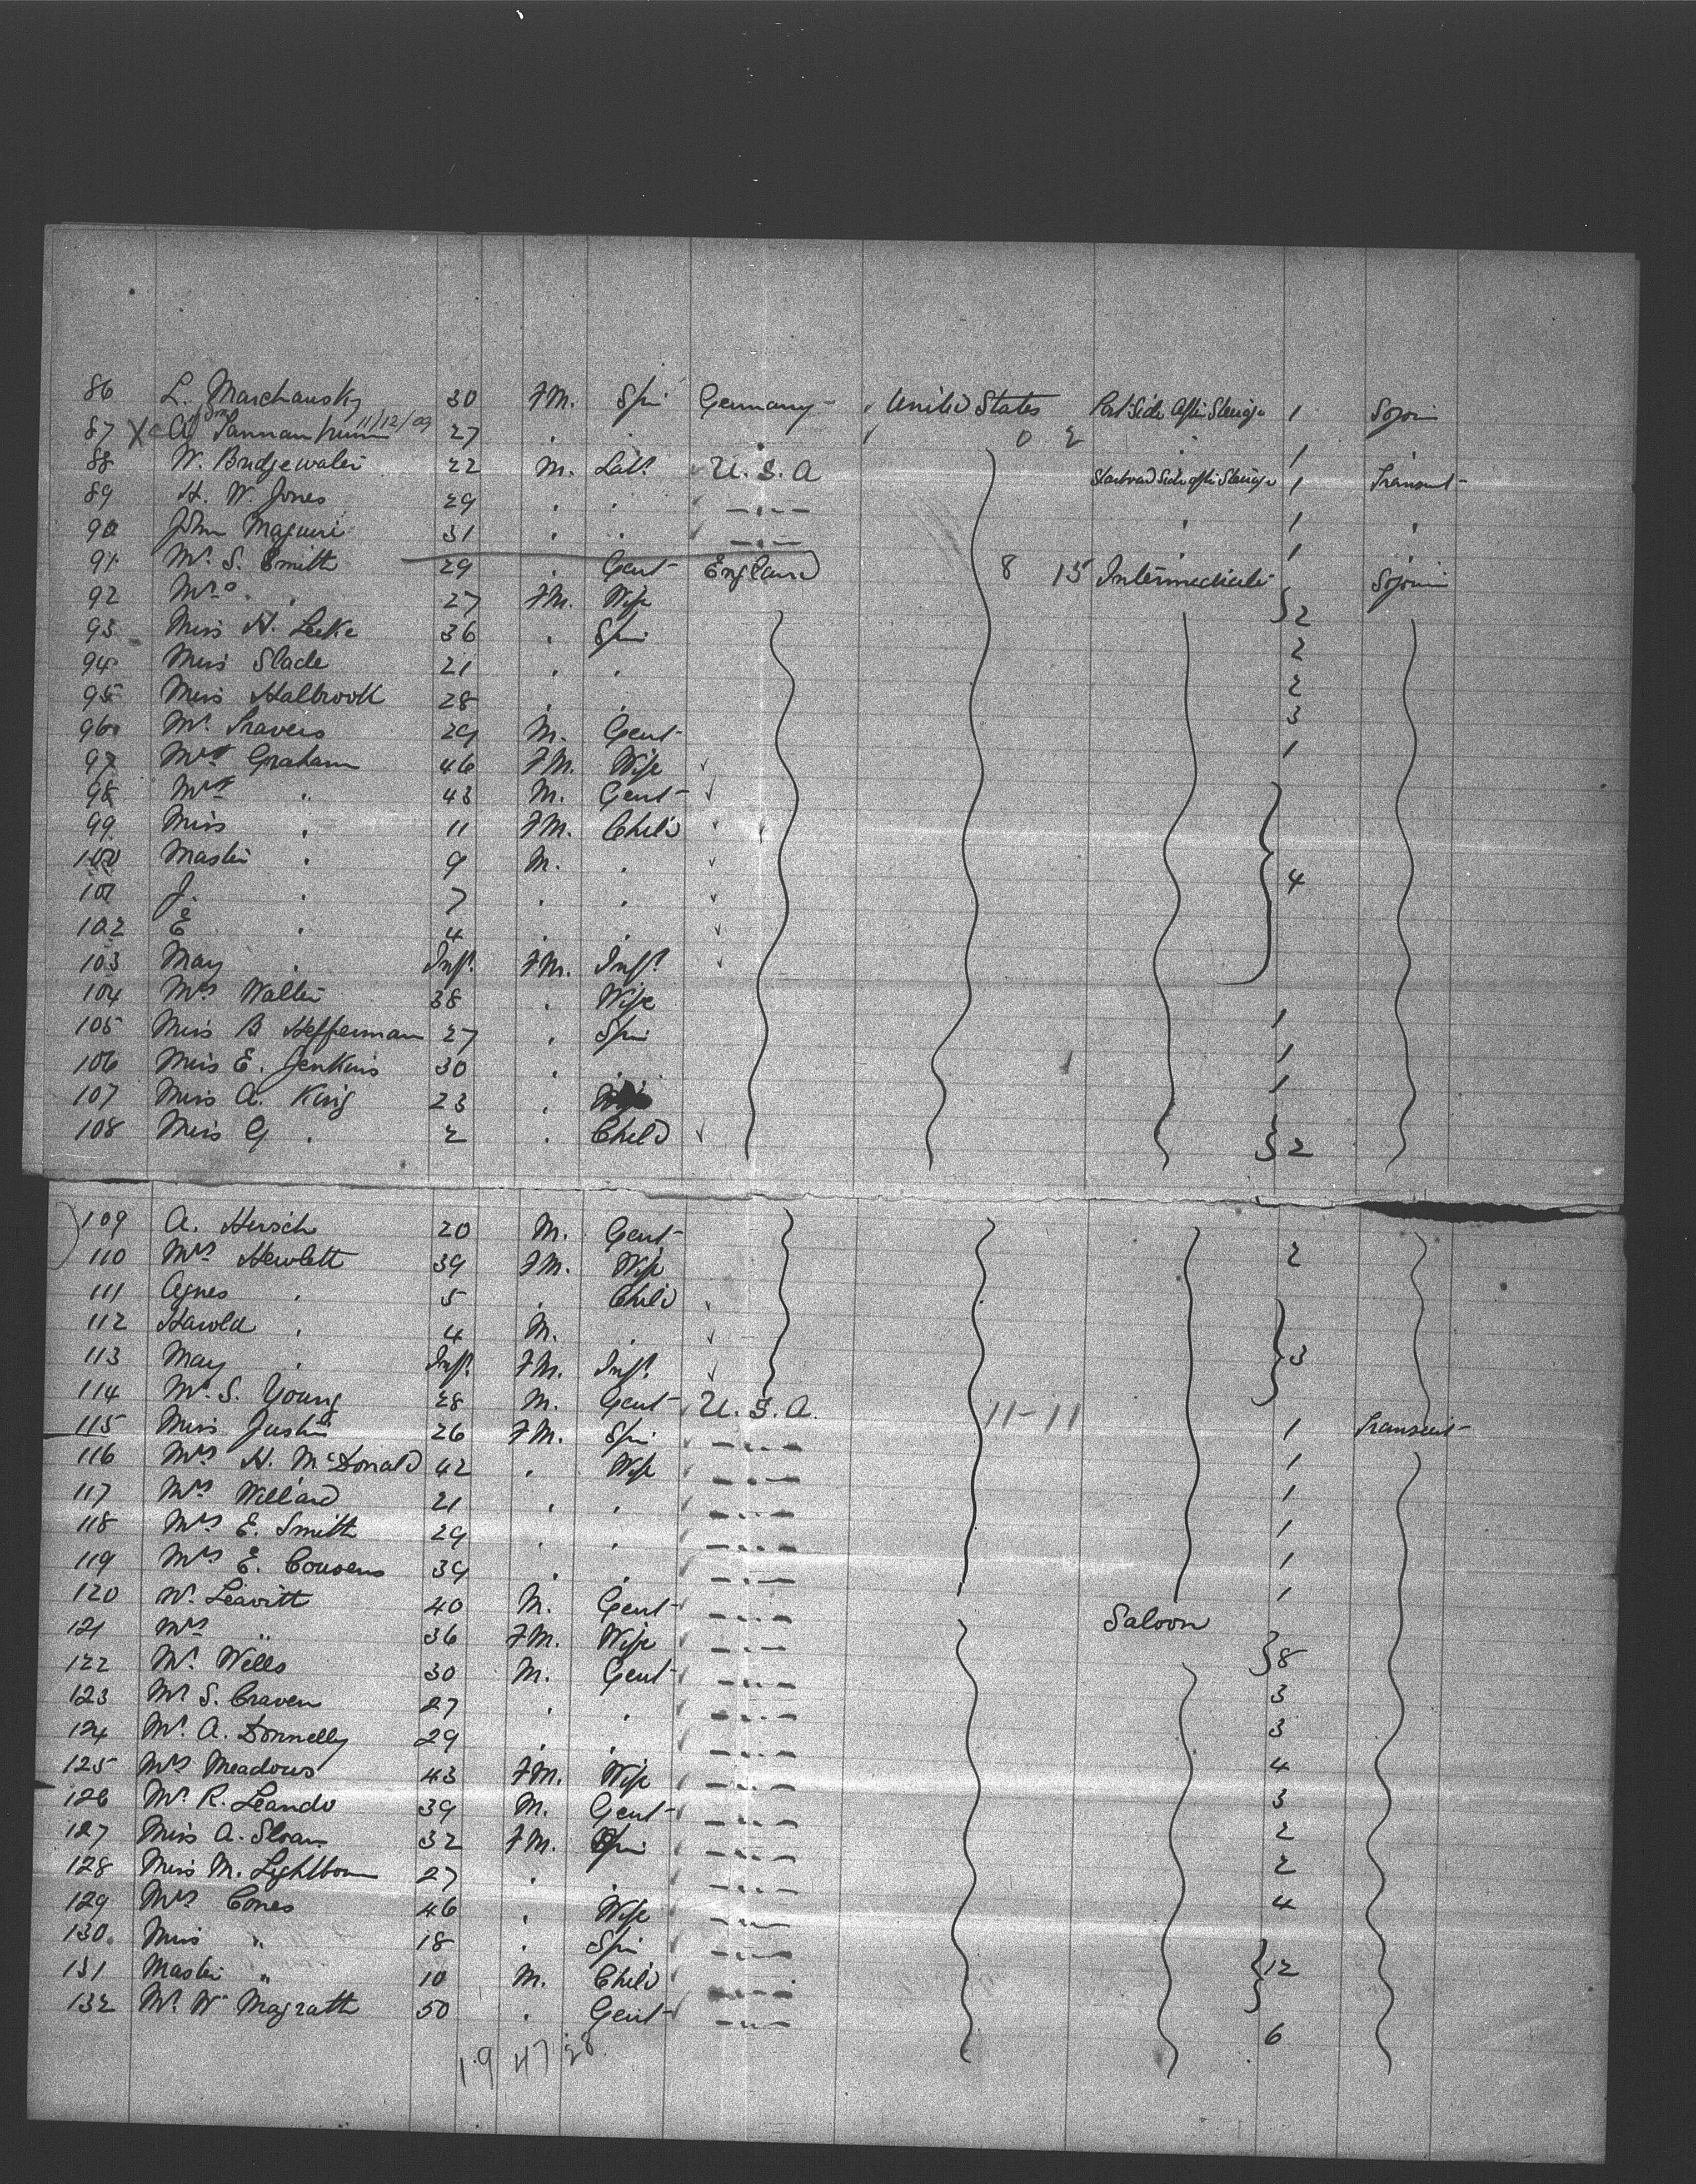 86 L. Marchausky 30 FM. Spi Germany United States Port Side After Steerige 1 Sojoin
87 X A. Tannam 11/12/09 27 " " " 0 2 " 1
88 W. Bridgewater 22 M. Labr U.S.A Starboard Side after Steerige 1 Transut
89 H. W. Jones 29 " " " " 1 "
90 John Maguire 31 " " " " 1 "
91 Mr. S. Smith 29 " Gent England 8 15 Intermediate Sojoin
92 Mrs " " 27 FM. Wife } 2
93 Miss H. Leeke 36 " Spi 2
94 Miss Slade 21 " " 2
95 Miss Halbrook 28 " " 3
96 Mr. Travers 29 M. Gent 1
97 Mrs Graham 46 FM. Wife
98 Mr " 43 M. Gent
99 Miss " 11 FM. Child
100 Master " 9 M. "
101 J. " 7 " " } 4
102 E " 4 " "
103 May " Inft. FM. Inft.
104 Mrs Walter 38 " Wife 1
105 Miss B Hefferman 27 " Spi 1
106 Miss E. Jenkins 30 " " 1
107 Miss A. King 23 "
108 Miss G " 2 " Child } 2
109 A. Hirsch 20 M. Gent
110 Mrs Hewlett 39 FM. Wife 2
111 Agnes " 5 " Child
112 Harold " 4 M. "
113 May " Inft. FM. Inft. } 3
114 Mr. S. Young 28 M. Gent U.S.A. 11-11
115 Miss Justin 26 FM. Spi " 1 Transut
116 Mrs H. McDonald 42 " Wife " 1
117 Mrs Willard 21 " " " 1
118 Mrs E. Smith 29 " " " 1
119 Mrs E. Cousens 39 " " " 1
120 W. Leavitt 40 M. Gent " 1
121 Mrs " 36 FM. Wife " Saloon } 8
122 Mr. Wells 30 M. Gent "
123 Mr S. Craven 27 " " " 3
124 Mr. A. Donnelly 29 " " " 3
125 Mrs Meadows 43 FM. Wife " 4
126 Mr. R. Leando 39 M. Gent " 3
127 Miss A. Sloan 32 FM. Spi " 2
128 Miss M. Lightbom 27 " " " 2
129 Mrs Cones 46 " Wife " 4
130 Miss " 18 " Spi "
131 Master " 10 M. Child " } 12
132 Mr. W Magrath 50 " Gent " 6
19 47 28